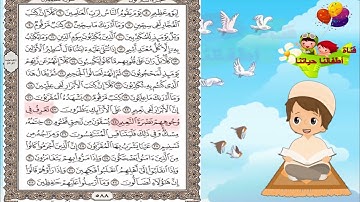 لِيَوْمٍ عَظِيمٍ ٥ يَوْمَ يَقُومُ النَّاسُ لِرَبِّ الْعَٰلَمِينَ ٦ كَلَّآ إِنَّ كِتَٰبَ
الْفُجَّارِ لَفِي سِجِّينٍ ٧ وَمَآ أَدْرَىٰكَ مَا سِجِّينٌ ٨ كِتَٰبٌ مَّرْقُومٌ ٩
وَيْلٌ يَوْمَئِذٍ لِّلْمُكَذِّبِينَ ١٠ الَّذِينَ يُكَذِّبُونَ بِيَوْمِ الدِّينِ ١١ وَمَا يُكَذِّبُ
بِهِۦٓ إِلَّا كُلُّ مُعْتَدٍ أَثِيمٍ ١٢ إِذَا تُتْلَىٰ عَلَيْهِ ءَايَٰتُنَا قَالَ أَسَٰطِيرُ الْأَوَّلِينَ ١٣
كَلَّا بَلْ رَانَ عَلَىٰ قُلُوبِهِم مَّا كَانُوا يَكْسِبُونَ ١٤ كَلَّآ إِنَّهُمْ عَن رَّبِّهِمْ
يَوْمَئِذٍ لَّمَحْجُوبُونَ ١٥ ثُمَّ إِنَّهُمْ لَصَالُوا الْجَحِيمِ ١٦ ثُمَّ يُقَالُ هَٰذَا
الَّذِي كُنتُم بِهِۦ تُكَذِّبُونَ ١٧ كَلَّآ إِنَّ كِتَٰبَ الْأَبْرَارِ لَفِي عِلِّيِّينَ ١٨
وَمَآ أَدْرَىٰكَ مَا عِلِّيُّونَ ١٩ كِتَٰبٌ مَّرْقُومٌ ٢٠ يَشْهَدُهُ الْمُقَرَّبُونَ ٢١
إِنَّ الْأَبْرَارَ لَفِي نَعِيمٍ ٢٢ عَلَى الْأَرَآئِكِ يَنظُرُونَ ٢٣ تَعْرِفُ فِي
وُجُوهِهِمْ نَضْرَةَ النَّعِيمِ ٢٤ يُسْقَوْنَ مِن رَّحِيقٍ مَّخْتُومٍ ٢٥
خِتَٰمُهُۥ مِسْكٌ وَفِي ذَٰلِكَ فَلْيَتَنَافَسِ الْمُتَنَٰفِسُونَ ٢٦ وَمِزَاجُهُۥ
مِن تَسْنِيمٍ ٢٧ عَيْنًا يَشْرَبُ بِهَا الْمُقَرَّبُونَ ٢٨ إِنَّ الَّذِينَ أَجْرَمُوا
كَانُوا مِنَ الَّذِينَ ءَامَنُوا يَضْحَكُونَ ٢٩ وَإِذَا مَرُّوا بِهِمْ يَتَغَامَزُونَ ٣٠
وَإِذَا انقَلَبُوٓا إِلَىٰٓ أَهْلِهِمُ انقَلَبُوا فَكِهِينَ ٣١ وَإِذَا رَأَوْهُمْ قَالُوٓا
إِنَّ هَٰٓؤُلَآءِ لَضَآلُّونَ ٣٢ وَمَآ أُرْسِلُوا عَلَيْهِمْ حَٰفِظِينَ ٣٣
٥٨٨
قناة
اطفالنا حياتنا